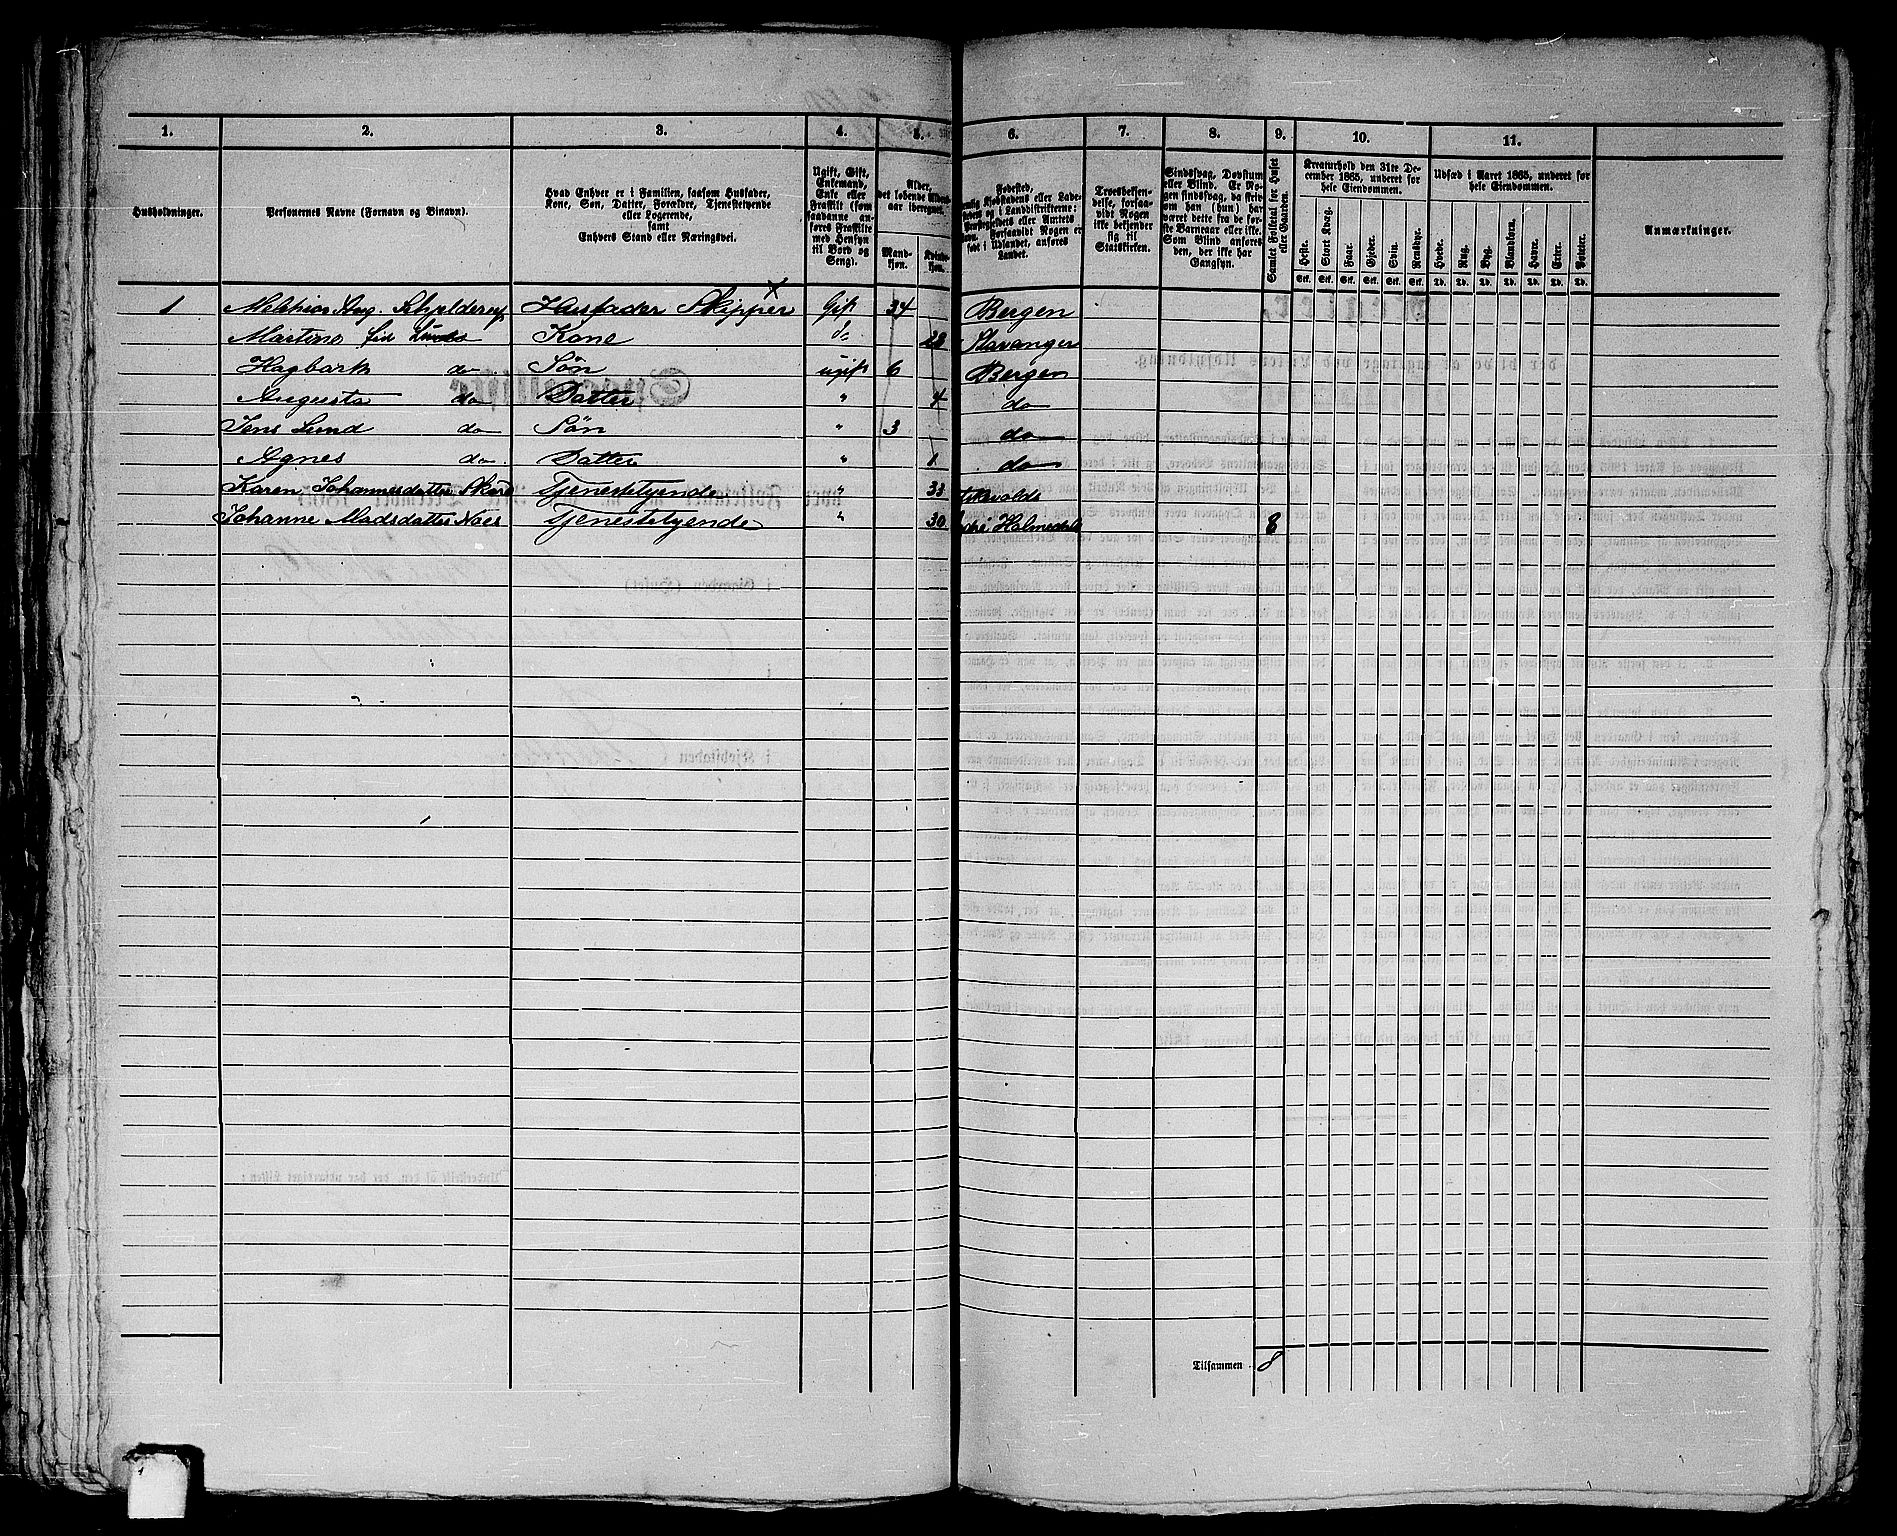 1. 2. 3. 4. 5. 6. 7. 8. 9. 10. 11.
Husholdninger.
Personernes Navne (Fornavn og Binavn).
Hvad Enhver er i Familien, saasom Husfader,
Kone, Søn, Datter, Forældre, Tjenestetyende
eller Logerende,
samt
Enhvers Stand eller Næringsvei.
Ugift, Gift,
Enkemand,
Enke eller
Fraskilt (som
saadanne an-
føres Fraskilte
med Hensyn
til Bord og
Seng).
Alder,
det løbende Alders-
aar iberegnet.
Mand-
kjøn.
Kvinde-
kjøn.
Fødested,
nemlig Kjøbstadens eller Lade-
stedets og i Landdistrikterne:
Præstegjeldets eller Amtets
Navn. Forsaavidt Nogen er
født i Udlandet, anføres
Landet.
Troesbekjen-
delse, forsaa-
vidt Nogen
ikke bekjender
sig til
Statskirken.
Sindssvag, Døvstum
eller Blind. Er No-
gen sindssvag, da skriv
om han (hun) har
været dette fra de før-
ste Barneaar eller ikke.
Som Blind anføres
den, der ikke har
Gangsyn.
Samlet Folketal for Huset
eller Gaarden.
Kreaturhold den 31te De-
cember 1865, underet for
hele Eiendommen.
Heste. Stort Kvæg. Faar. Gjeder. Svin. Rensdyr.
Stk. Stk. Stk. Stk. Stk. Stk.
Udsæd i Aaret 1865, underet for
hele Eiendommen.
Hvede. Rug. Byg. Blandkorn. Havre. Erter. Poteter.
Td. Td. Td. Td. Td. Td. Td.
Anmærkninger.
1 Melchior Aug. Schjelderup Husfader Skipper Gift 34 Bergen
Martine fød Lund Kone do 28 Stavanger
Hagbart do Søn ugift 6 Bergen
Augusta do Datter " 4 do
Jens Lund do Søn " 3 do
Agnes do Datter " 1 do
Karen Johannesdatter Tjenestetyende " 33
Johanne Madsdatter Næs Tjenestetyende " 30 Holmedal 8
Tilsammen 8